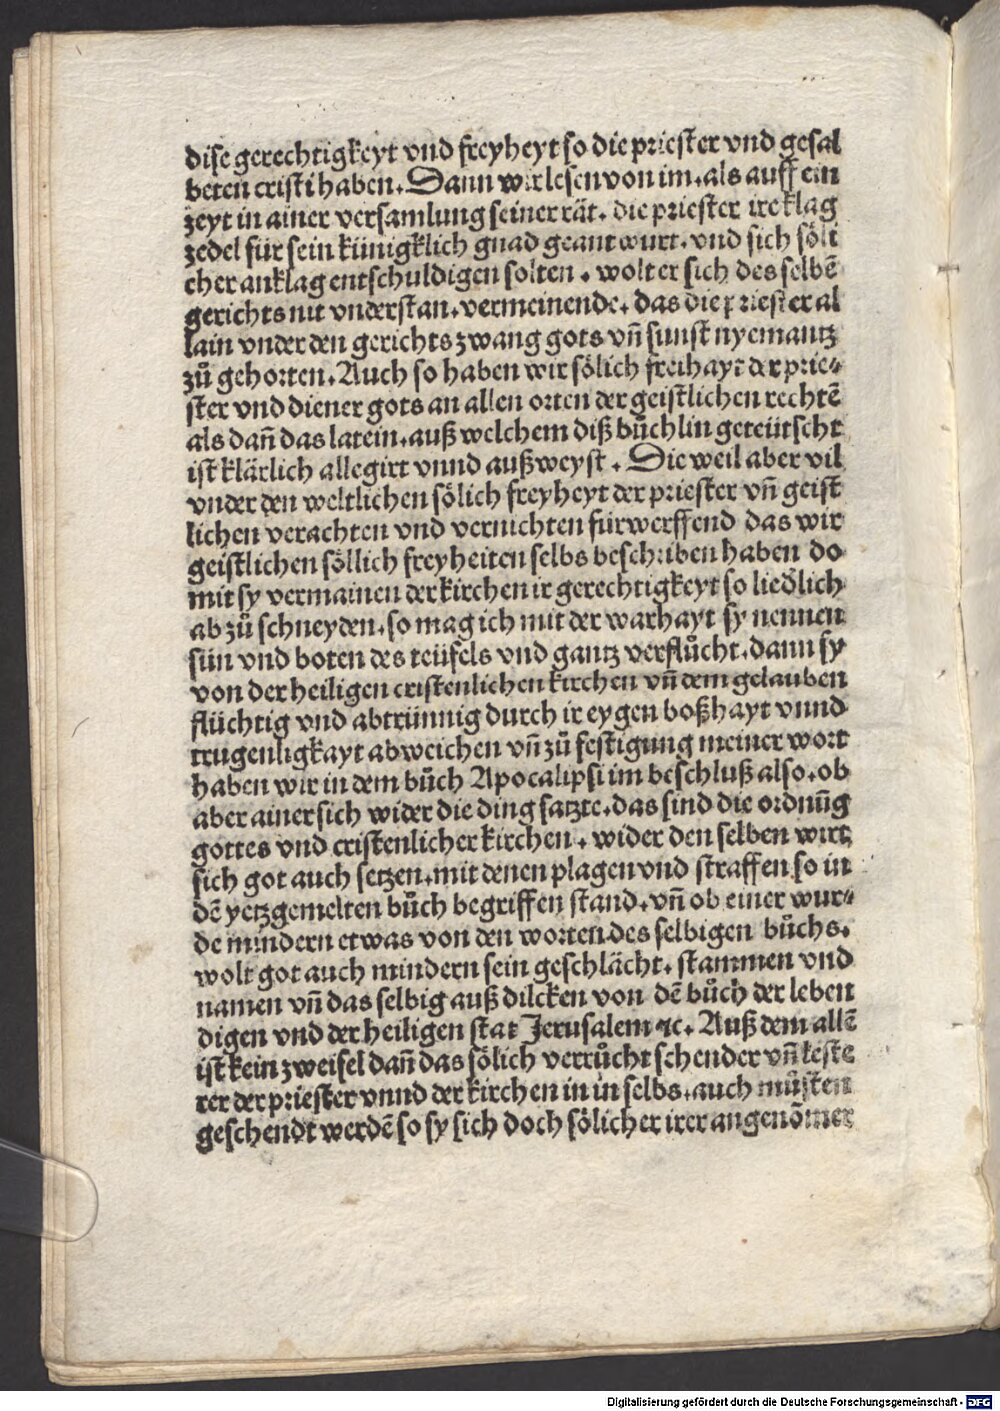 dise gerechtigkeyt vnd freyheyt so die priester vnd gesal
beten cristi haben. Dann wir lesen von im. als auff ein
zeyt in ainer versamlung seiner rät. die priester ire klag
zedel für sein künigklich gnad geantwurt. vnd sich söli
cher anklag entschuldigen solten. wolt er sich des selbē
gerichts nit vnderstan. vermeinende. das die priester al
lain vnder den gerichtszwang gots vn̄ sunst nyemantz
zů gehorten. Auch so haben wir sölich freihayt der prie⸗
ster vnd diener gots an allen orten der geistlichen rechtē
als dan̄ das latein. auß welchem diß bůchlin geteütscht
ist klärlich allegirt vnnd außweyst. Die weil aber vil
vnder den weltlichen sölich freyheyt der priester vn̄ geist
lichen verachten vnd vernichten fürwerffend das wir
geistlichen söllich freyheiten selbs beschriben haben do
mit sy vermainen der kirchen ir gerechtigkeyt so liedlich
ab zů schneyden. so mag ich mit der warhayt sy nennen
sün vnd boten des teüfels vnd gantz verflůcht. dann sy
von der heiligen cristenlichen kirchen vn̄ dem gelauben
flüchtig vnd abtrünnig durch ir eygen boßhayt vnnd
trugenligkayt abweichen vn̄ zů festigung meiner wort
haben wir in dem bůch Apocalipsi im beschluß also. ob
aber ainer sich wider die ding satzte. das sind die ordnūg
gottes vnd cristenlicher kirchen. wider den selben wirt
sich got auch setzen. mit denen plagen vnd straffen so in
dē yetzgemelten bůch begriffen stand. vn̄ ob einer wur⸗
de mindern etwas von den worten des selbigen bůchs.
wolt got auch mindern sein geschlächt. stammen vnd
namen vn̄ das selbig auß dilcken von dē bůch der leben
digen vnd der heiligen stat Jerusalem ⁊c. Auß dem allē
ist kein zweifel dan̄ das sölich verrůcht schender vn̄ leste
rer der priester vnnd der kirchen in in selbs. auch můsten
geschendt werdē so sy sich doch sölicher irer angenōmer
Digitalisierung gefördert durch die Deutsche Forschungsgemeinschaft - DFG